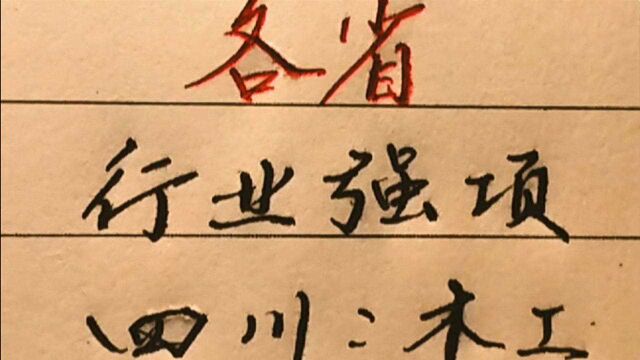 各省
行业强项
四川：木工